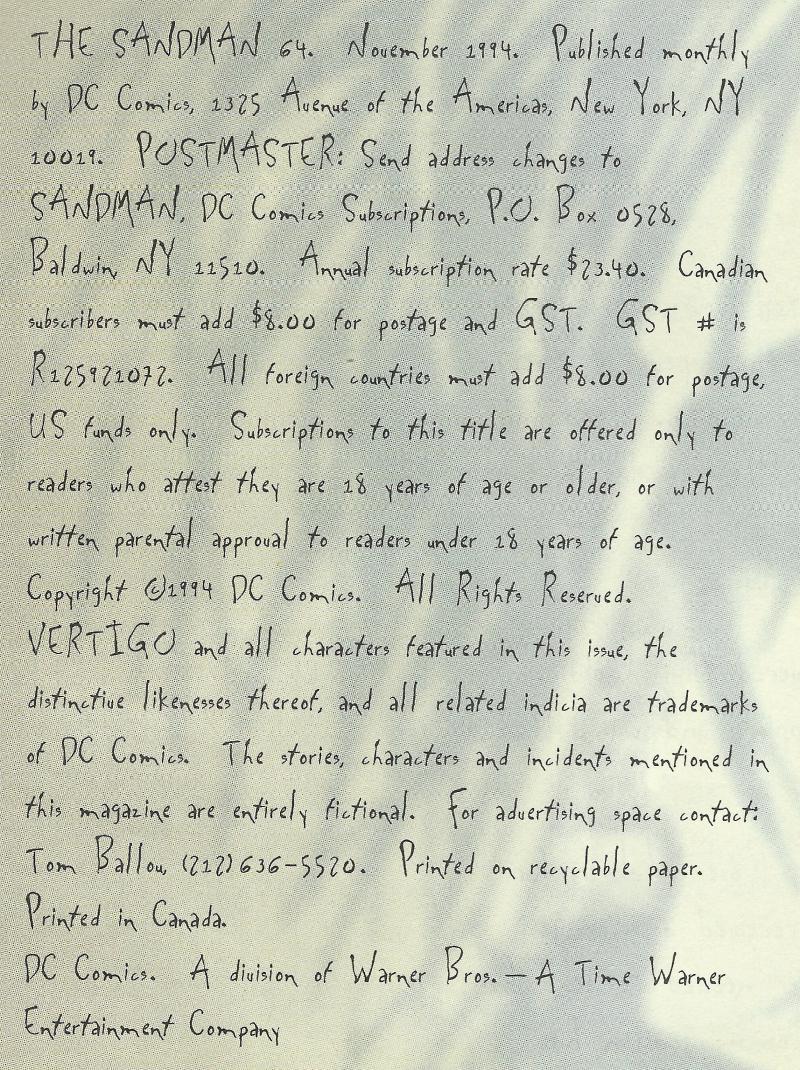 THE SANDMAN 64. November 1994. Published monthly
by DC Comics, 1325 Avenue of the Americas, New York, NY
10019. POSTMASTER: Send address changes to
SANDMAN, DC Comics Subscriptions, P.O. Box 0528,
Baldwin, NY 11510. Annual subscription rate $23.40. Canadian
subscribers must add $8.00 for postage and GST. GST # is
R125921072. All foreign countries must add $8.00 for postage,
US funds only. Subscriptions to this title are offered only to
readers who attest they are 18 years of age or older, or with
written parental approval to readers under 18 years of age.
Copyright ©1994 DC Comics. All Rights Reserved.
VERTIGO and all characters featured in this issue, the
distinctive likenesses thereof, and all related indicia are trademarks
of DC Comics. The stories, characters and incidents mentioned in
this magazine are entirely fictional. For advertising space contact:
Tom Ballou, (212) 636-5520. Printed on recyclable paper.
Printed in Canada.
DC Comics. A division of Warner Bros.—A Time Warner
Entertainment Company